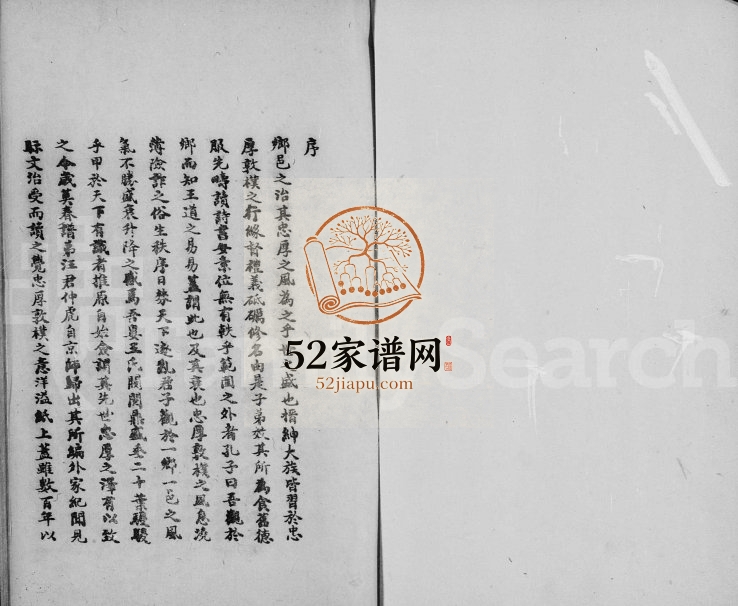 序
鄉邑之治其忠厚之風為之乎世之盛也搢紳大族皆習於忠
厚敦樸之行緣督禮義砥礪修名由是子弟效其所為食舊德
服先疇讀詩書安素位無有軼乎範圍之外者孔子曰吾觀於
鄉而知王道之易易蓋謂此也及其衰也忠厚敦樸之風息澆
薄險詐之俗生秩序日斁天下遂亂君子觀於一鄉一邑之風
氣不勝盛衰升降之感焉吾婁王氏閥閱鼎盛垂二十葉駸駸
乎甲於天下有識者推原自始僉謂其先世忠厚之澤有以致
之今歲莫春譜弟汪君仲虎自京師歸出其所編外家紀聞見
眎文治受而讀之覺忠厚敦樸之意洋溢紙上蓋雖數百年以
52家谱网
52jiapu.com
Search